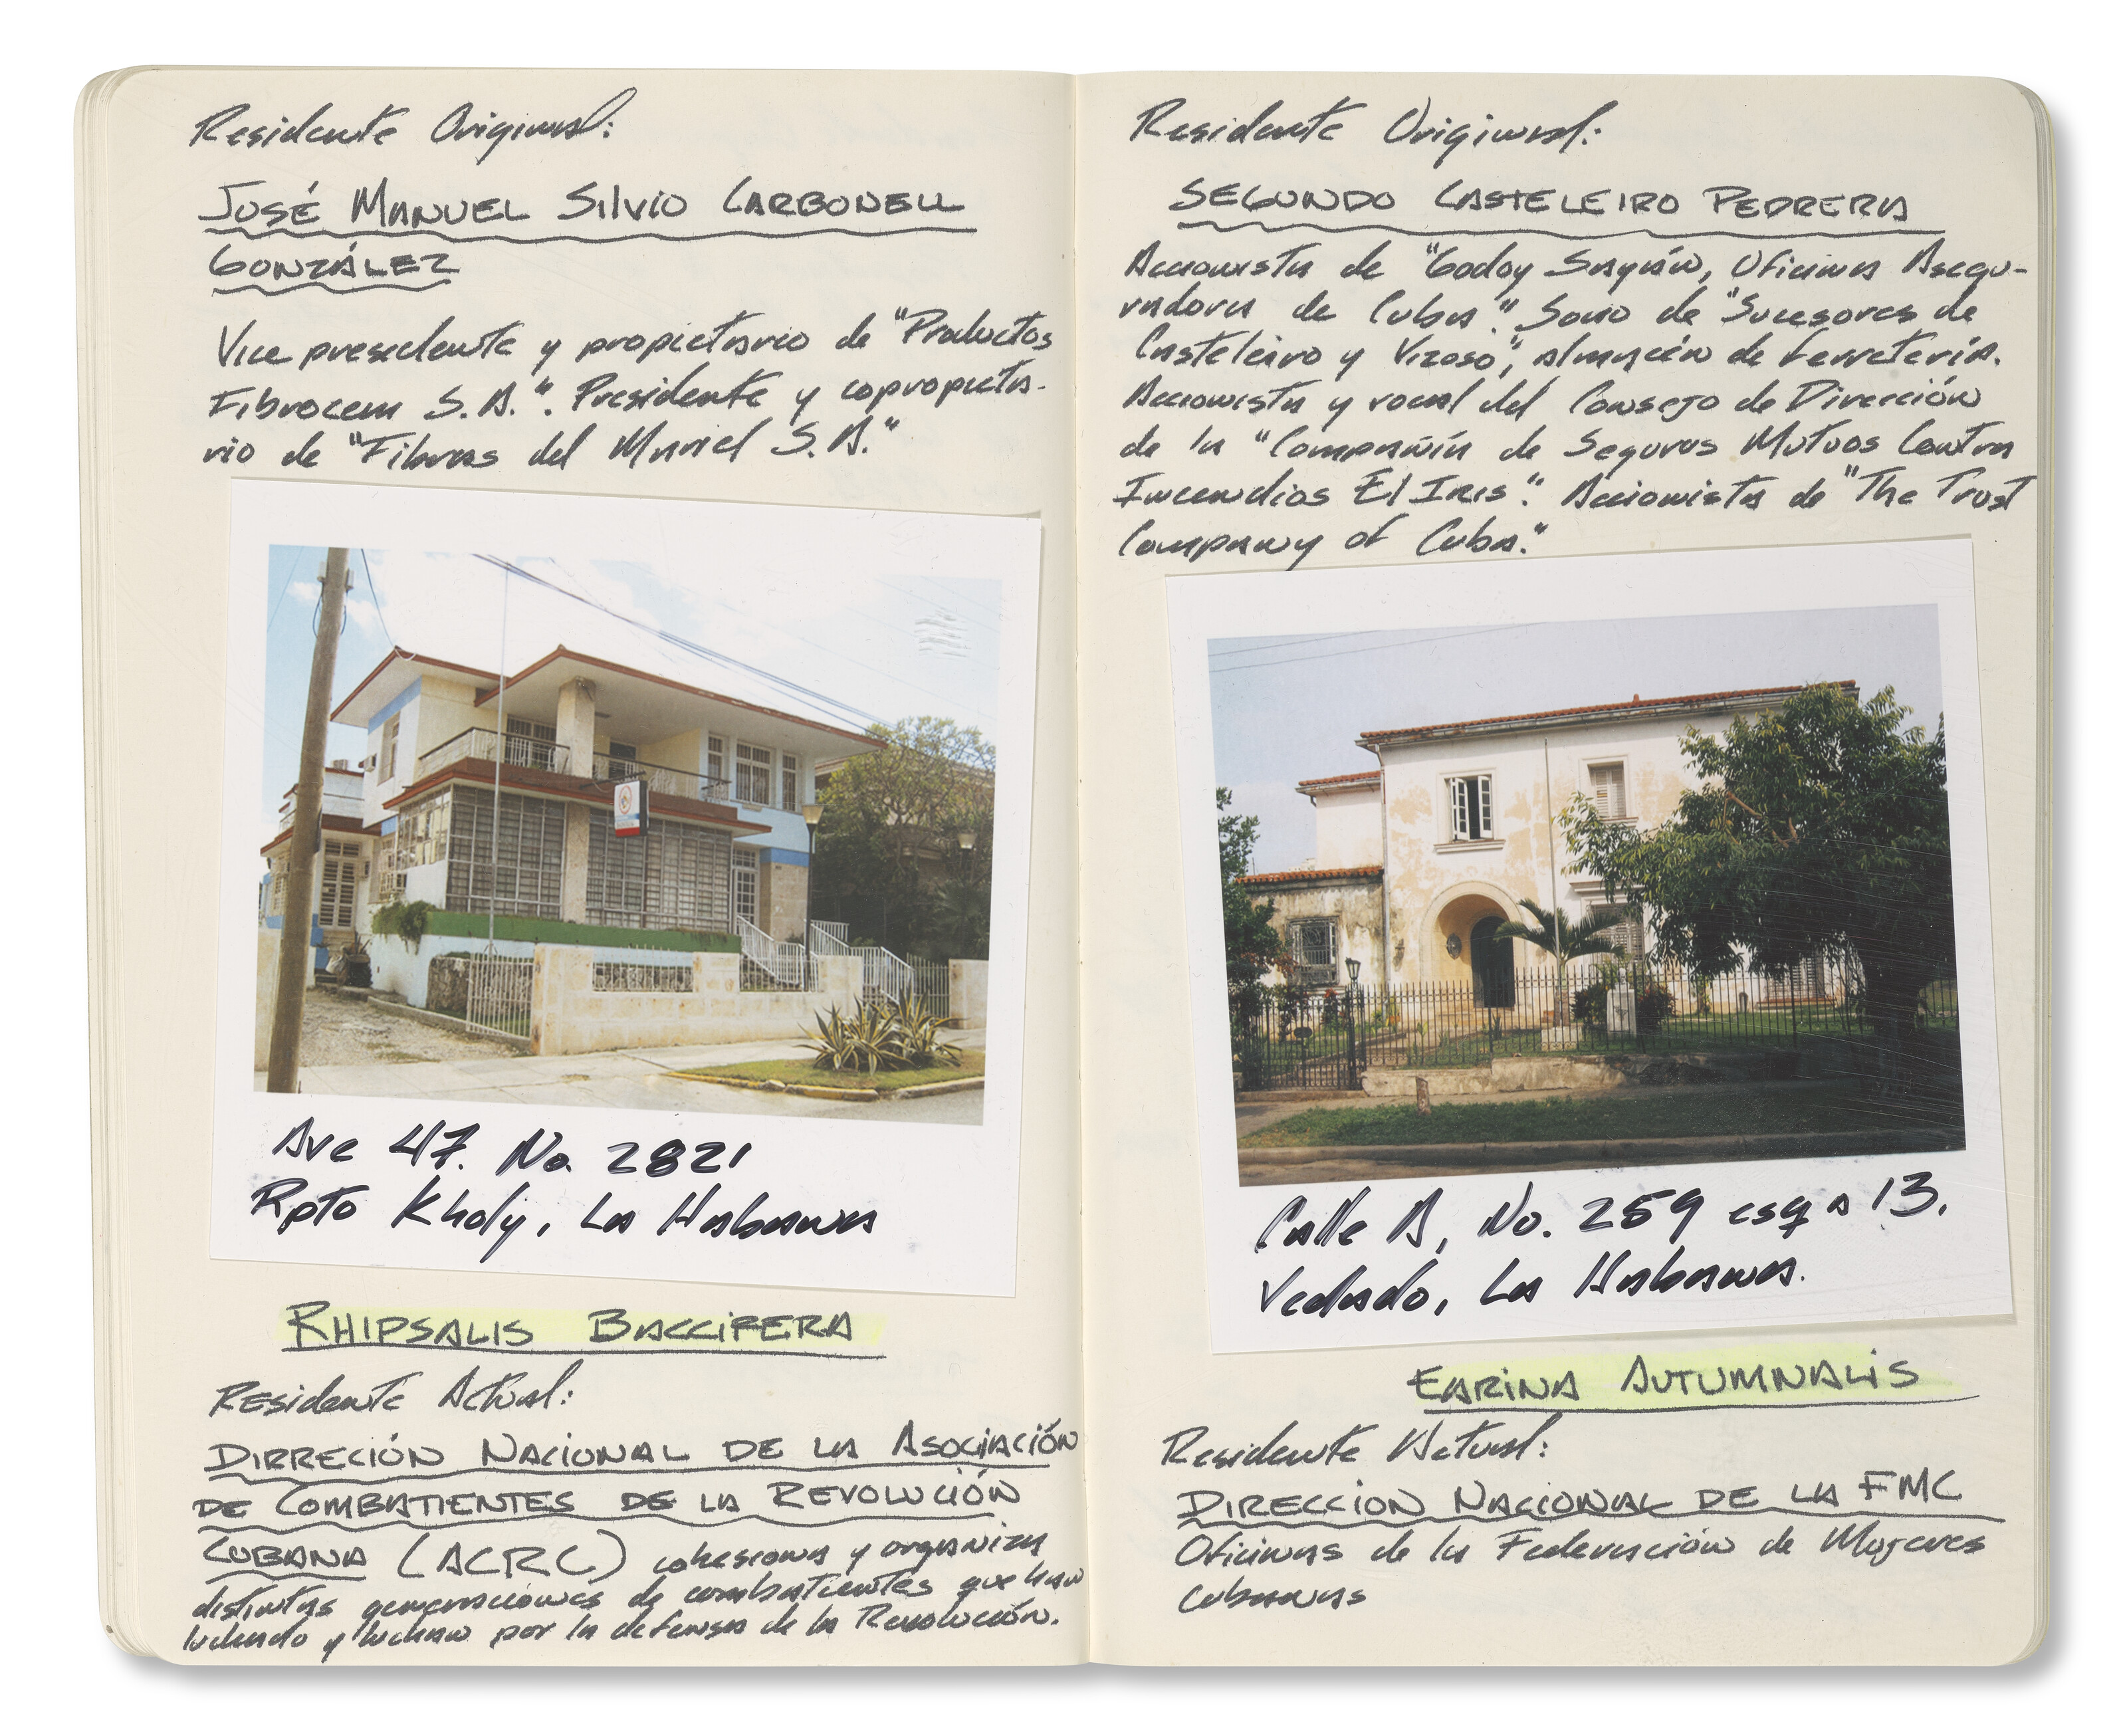 Residente Original:
JOSÉ MANUEL SILVIO CARBONELL
GONZÁLEZ
Vice presidente y propietario de "Productos
Fibrocem S.A.". Presidente y copropieta-
rio de "Fibras del Mariel S.A."
Ave 47. No. 2821
Rpto Kholy, La Habana
RHIPSALIS BACCIFERA
Residente Actual:
DIRRECIÓN NACIONAL DE LA ASOCIACIÓN
DE COMBATIENTES DE LA REVOLUCIÓN
CUBANA (ACRC) cohesiona y organiza
distintas generaciones de combatientes que han
luchado y luchan por la defensa de la Revolución.
Residente Original:
SEGUNDO CASTELEIRO PEDRERA
Accionista de "Godoy Sayán, Oficina Asegu-
radora de Cuba". Socio de "Sucesores de
Casteleiro y Vizoso", almacén de ferretería.
Accionista y vocal del Consejo de Dirección
de la "Compañía de Seguros Mutuos Contra
Incendios El Iris". Accionista de "The Trust
Company of Cuba."
Calle A, No. 259 esq a 13.
Vedado, La Habana.
EARINA AUTUMNALIS
Residente Actual:
DIRECCION NACIONAL DE LA FMC
Oficinas de la Federación de Mujeres
Cubanas